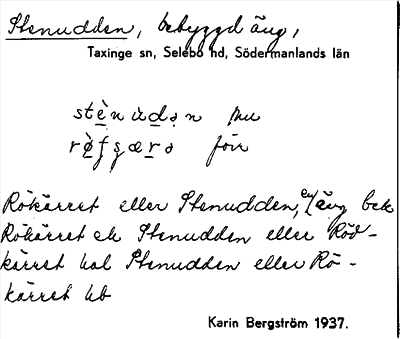 Stenudden, bebyggd äng,
Taxinge sn, Selebo hd, Södermanlands län
stè̱nùḏən nu
förr
Rökärret eller Stenudden, en äng bek
Rökärret ek Stenudden eller Röd-
kärret hal Stenudden eller Rö-
kärret hb
Karin Bergström 1937.